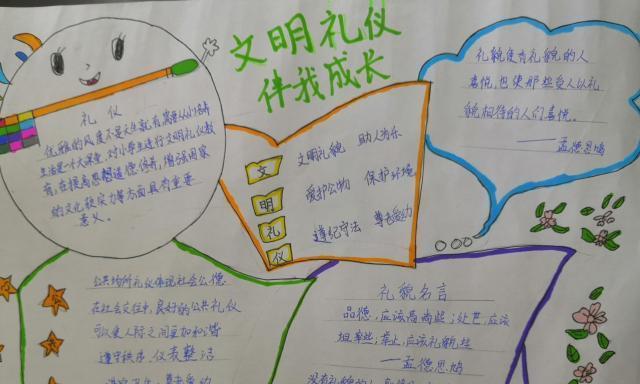 文明礼仪
伴我成长
礼仪
优雅的风度不是天生就有需要从小培养
生活是一大课堂,对小学生进行文明礼仪教
育,在提高思想道德修养,增强国家
的文化软实力等方面具有重要
意义。
文
明
礼
仪
文明礼貌 助人为乐
爱护公物 保护环境
遵纪守法 尊老爱幼
礼貌使有礼貌的人
喜悦,也使那些受人以礼
貌相待的人们喜悦。
——孟德思鸠
公共场所礼仪体现社会公德
在社会交往中,良好的公共礼仪
可以使人际之间更加和谐
遵守秩序、仪表整洁
讲究卫生、尊老爱幼
礼貌名言
品德,应该高尚些;处世,应该
坦率些;举止,应该礼貌些
——孟德思鸠
没有礼貌的人